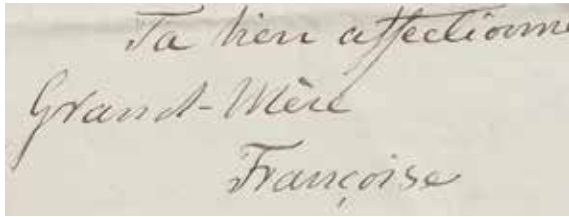 Ta bien affectionné
Grand-Mère
Françoise